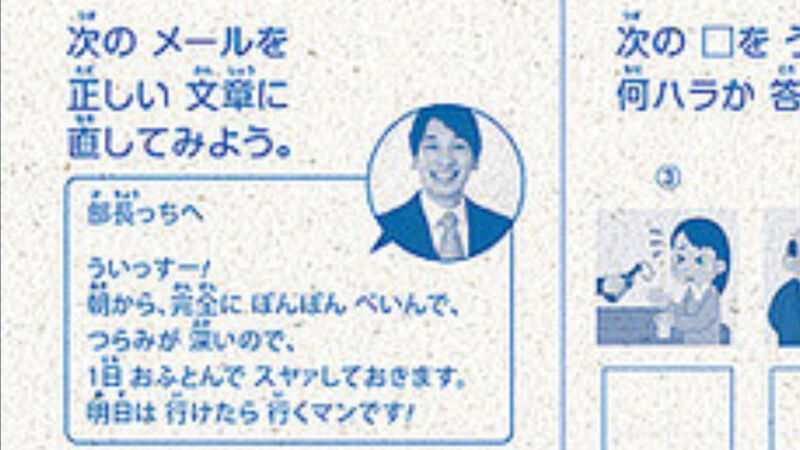 次の メールを
正しい 文章に
直してみよう。
部長っちへ
ういっすー!
朝から、完全に ぽんぽん ぺいんで、
つらみが 深いので、
1日 おふとんで スヤァしておきます。
明日は 行けたら 行くマンです!
次の □を う
何ハラか 答
③